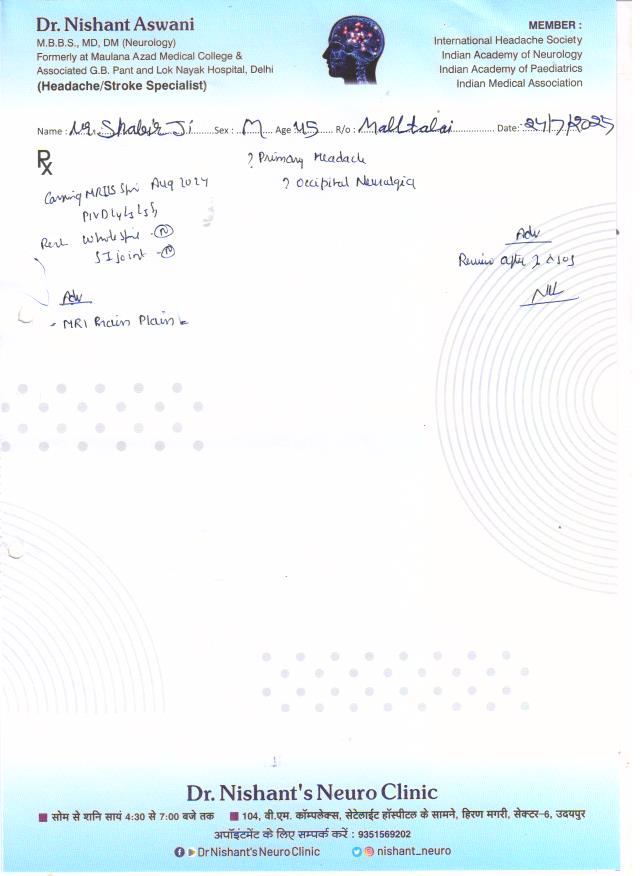 Dr. Nishant Aswani
M.B.B.S., MD, DM (Neurology)
Formerly at Maulana Azad Medical College &
Associated G.B. Pant and Lok Nayak Hospital, Delhi
(Headache/Stroke Specialist)
MEMBER :
International Headache Society
Indian Academy of Neurology
Indian Academy of Paediatrics
Indian Medical Association
Name : Mr. Shabir Ji Sex : M Age 45 R/o : Malltalai Date: 24/7/2025
Rx
? Primary Headach
? Occipital Neuralgia
MRI LS Aug 2024
PIVD L4L5 L5S1
Whole spine - N
SI joint - N
Adv
- MRI Brain Plain
Adv
Review after 2 days
Dr. Nishant's Neuro Clinic
सोम से शनि सायं 4:30 से 7:00 बजे तक 104, वी.एम. कॉम्पलेक्स, सेटेलाईट हॉस्पीटल के सामने, हिरण मगरी, सेक्टर-6, उदयपुर
अपॉइंटमेंट के लिए सम्पर्क करें : 9351569202
Dr Nishant's Neuro Clinic nishant_neuro